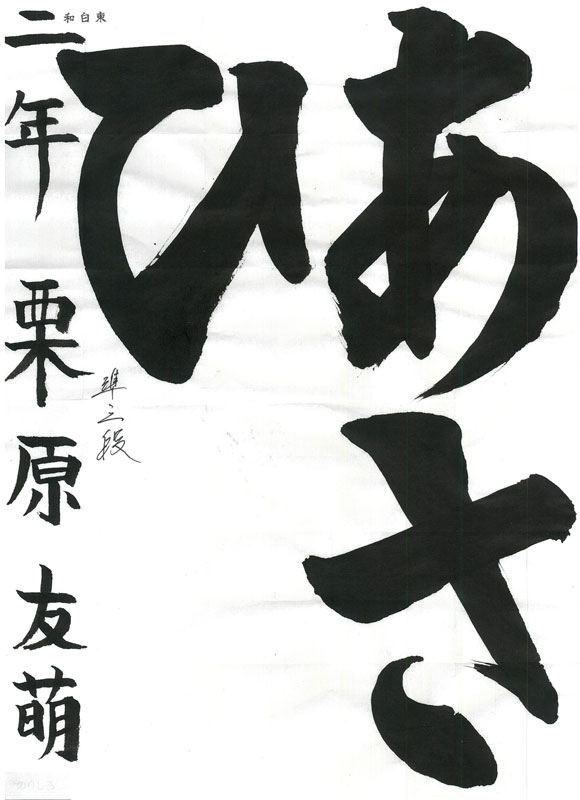 あさ
ひ
東白和
準三段
二年栗原友萌